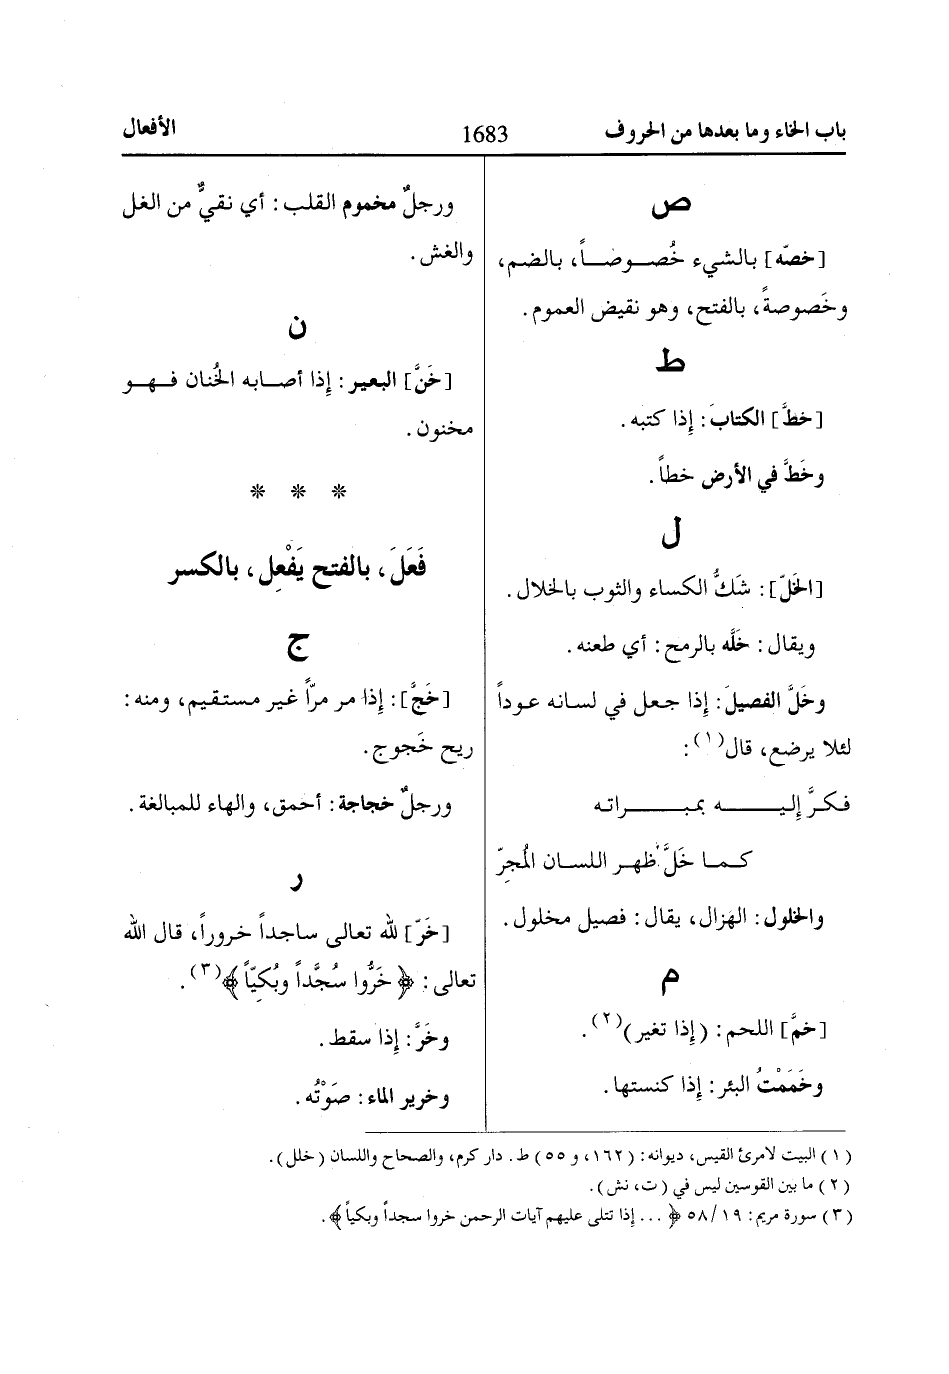 باب الخاء وما بعدها من الحروف 1683 الأفعال
ص
[خصّه] بالشيء خُصوصاً، بالضم،
وخَصوصةً، بالفتح، وهو نقيض العموم.
ط
[خطَّ] الكتابَ: إذا كتبه.
وخَطَّ في الأرض خطاً.
ل
[الخَلّ]: شَكُّ الكساء والثوب بالخلال.
ويقال: خَلَّه بالرمح: أي طعنه.
وخَلَّ الفصيلَ: إذا جعل في لسانه عوداً
لئلا يرضع، قال(١):
فكرَّ إليه بمبراته
كما خَلَّ ظهر اللسان المُجِرّ
والخلول: الهزال، يقال: فصيل مخلول.
م
[خمَّ] اللحم: (إذا تغير)(٢).
وخَمَمْتُ البئر: إذا كنستها.
ورجلٌ مخموم القلب: أي نقيٌّ من الغل
والغش.
ن
[خَنَّ] البعير: إذا أصابه الخُنان فهو
مخنون.
* * *
فَعَلَ، بالفتح يَفْعِل، بالكسر
ج
[خَجَّ]: إذا مر مرّاً غير مستقيم، ومنه:
ريح خَجوج.
ورجلٌ خجاجة: أحمق، والهاء للمبالغة.
ر
[خَرّ] لله تعالى ساجداً خروراً، قال الله
تعالى: ﴿خَرُّوا سُجَّداً وبُكِيّاً﴾(٣).
وخَرَّ: إذا سقط.
وخرير الماء: صَوْتُه.
(١) البيت لامرئ القيس، ديوانه: (١٦٢، و ٥٥) ط. دار كرم، والصحاح واللسان (خلل).
(٢) ما بين القوسين ليس في (ت، نش).
(٣) سورة مريم: ١٩/٥٨ ﴿... إذا تتلى عليهم آيات الرحمن خروا سجداً وبكياً﴾.